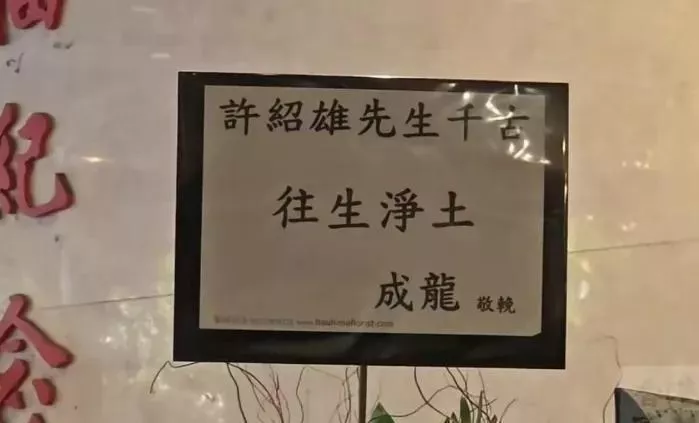 許紹雄先生千古
往生淨土
成龍 敬輓
紀
念